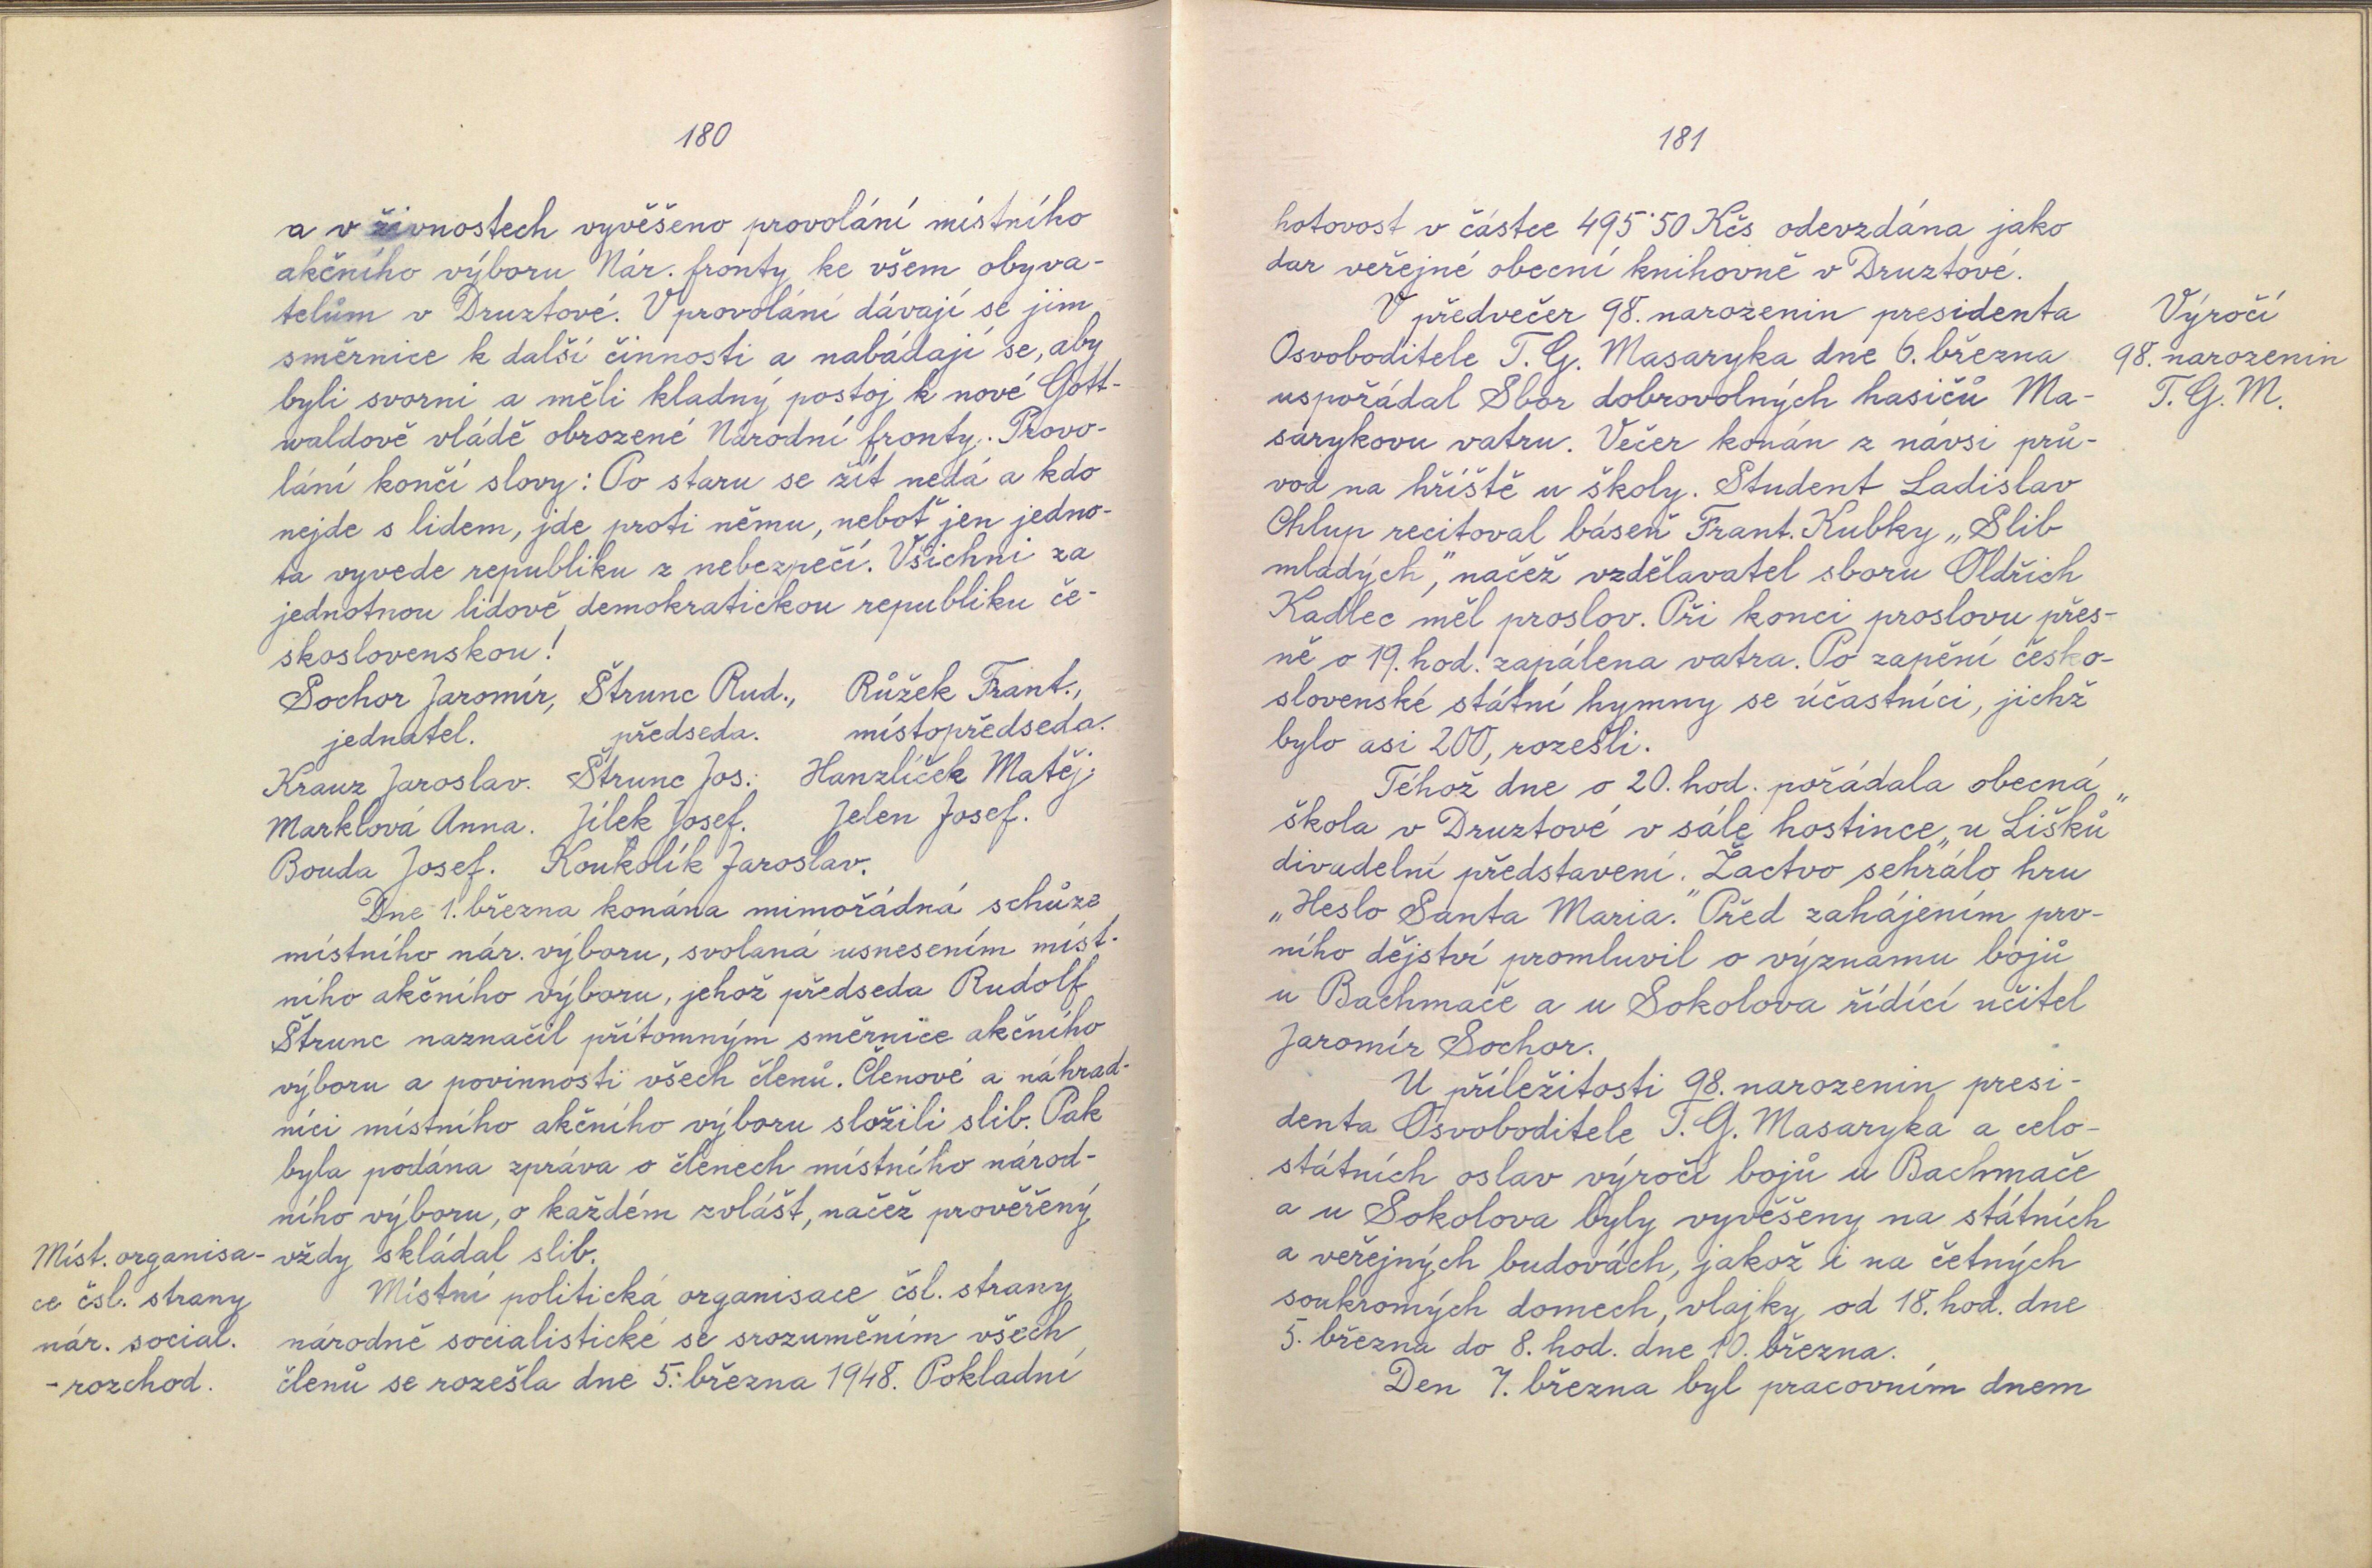 180
a v živnostech vyvěšeno provolání místního
akčního výboru Nár. fronty ke všem obyva-
telům v Druztové. V provolání dávají se jim
směrnice k další činnosti a nabádají se, aby
byli svorni a měli kladný postoj k nové Gott-
waldově vládě obrozené Národní fronty. Provo-
lání končí slovy: Po staru se žít nedá a kdo
nejde s lidem, jde proti němu, neboť jen jedno-
ta vyvede republiku z nebezpečí. Všichni za
jednotnou lidově demokratickou republiku če-
skoslovenskou!
Sochor Jaromír, Štrunc Rud., Růžek Frant.,
jednatel. předseda. místopředseda.
Krauz Jaroslav. Štrunc Jos. Hanzlíček Matěj.
Marklová Anna. Jílek Josef. Jelen Josef.
Bouda Josef. Koukolík Jaroslav.
Dne 1. března konána mimořádná schůze
místního nár. výboru, svolaná usnesením míst-
ního akčního výboru, jehož předseda Rudolf
Štrunc naznačil přítomným směrnice akčního
výboru a povinnosti všech členů. Členové a náhrad-
níci místního akčního výboru složili slib. Pak
byla podána zpráva o členech místního národ-
ního výboru, o každém zvlášt, načež prověřený
vždy skládal slib.
Míst. organisa-
ce čsl. strany
nár. social.
- rozchod.
Místní politická organisace čsl. strany
národně socialistické se srozuměním všech
členů se rozešla dne 5. března 1948. Pokladní
181
hotovost v částce 495·50 Kčs odevzdána jako
dar veřejné obecní knihovně v Druztové.
V předvečer 98. narozenin presidenta
Osvoboditele T. G. Masaryka dne 6. března
uspořádal Sbor dobrovolných hasičů Ma-
sarykovu vatru. Večer konán z návsi prů-
vod na hřiště u školy. Student Ladislav
Chlup recitoval báseň Frant. Kubky „Slib
mladých", načež vzdělavatel sboru Oldřich
Kadlec měl proslov. Při konci proslovu přes-
ně o 19. hod. zapálena vatra. Po zapění česko-
slovenské státní hymny se účastníci, jichž
bylo asi 200, rozešli.
Výročí
98. narozenin
T. G. M.
Téhož dne o 20. hod. pořádala obecná
škola v Druztové v sále hostince „u Lišků"
divadelní představení. Žactvo sehrálo hru
„Heslo Santa Maria." Před zahájením prv-
ního dějství promluvil o významu bojů
u Bachmače a u Sokolova řídící učitel
Jaromír Sochor.
U příležitosti 98. narozenin presi-
denta Osvoboditele T. G. Masaryka a celo-
státních oslav výročí bojů u Bachmače
a u Sokolova byly vyvěšeny na státních
a veřejných budovách, jakož i na četných
soukromých domech, vlajky od 18. hod. dne
5. března do 8. hod. dne 10. března.
Den 7. března byl pracovním dnem